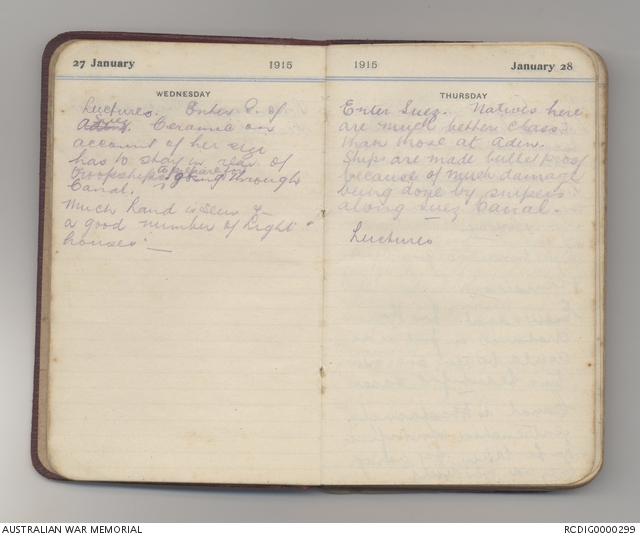 27 January 1915
WEDNESDAY
Luctures. Enter P. of
Suez
Aden. Ceramic on
account of her size
has to stay in rear of
troopships & prepare for going through
Canal.
Much land is seen &
a good number of Light
houses.
1915 January 28
THURSDAY
Enter Suez. Natives here
are much better class
than those at Aden.
Ships are made bullet proof
because of much damage
being done by snipers
along Suez Canal.
Luctures
AUSTRALIAN WAR MEMORIAL
RCDIG0000299